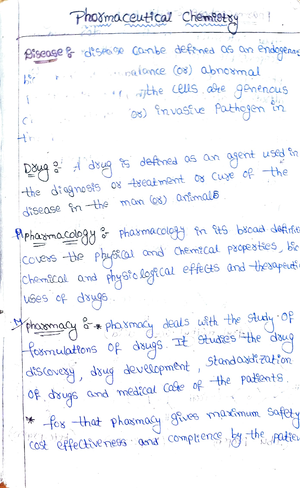 Pharmaceutical Chemistry
Disease :- disease can be defined as an endogenes
balance (or) abnormal
the cells are generous
or) invasive pathogen in
Drug :- A drug is defined as an agent used in
the diagnosis or treatment or cure of the
disease in the man (or) animals
Pharmacology :- pharmacology in its broad definit
covers the physical and chemical properties, bio
chemical and physiological effects and therapeutic
uses of drugs.
pharmacy :- * pharmacy deals with the study of
formulations of drugs. It studies the drug
discovery, drug development, standardization
of drugs and medical care of the patients.
* for that pharmacy gives maximum safety
cost effectiveness and complience by the patien